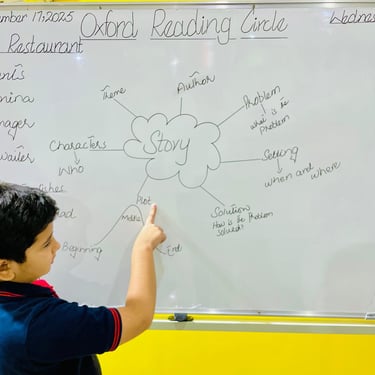 mber 17, 2025
Oxford Reading Circle
Wednes
Restaurant
Theme
Author
Problem
what is the
problem
nina
nager
waiter
Characters
Who
Story
Setting
when and where
ishes
Plot
Middle
Beginning
End
Solution
How is the Problem
solved?